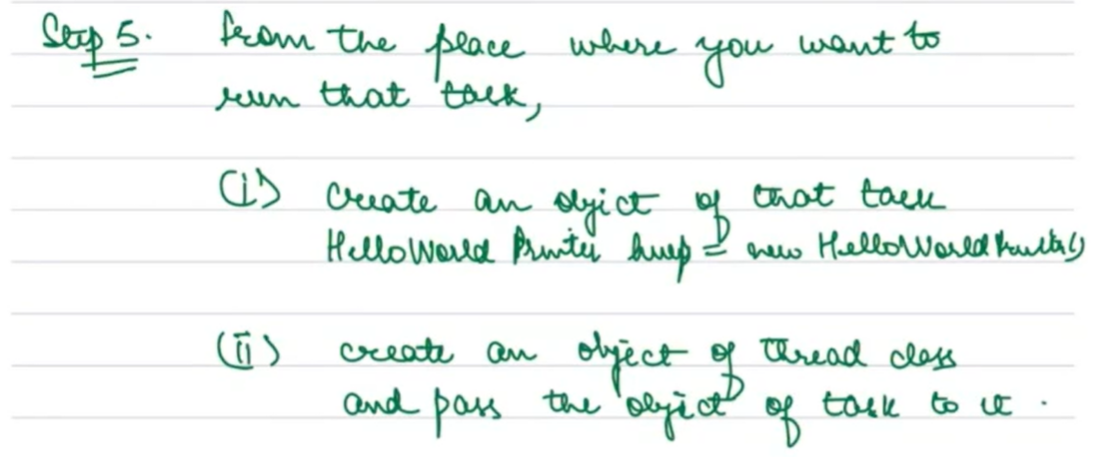 Step 5. From the place where you want to
run that task,
(i) create an object of that task
HelloWorld Printer hwp = new HelloWorldPrinter()
(ii) create an object of Thread class
and pass the object of task to it.